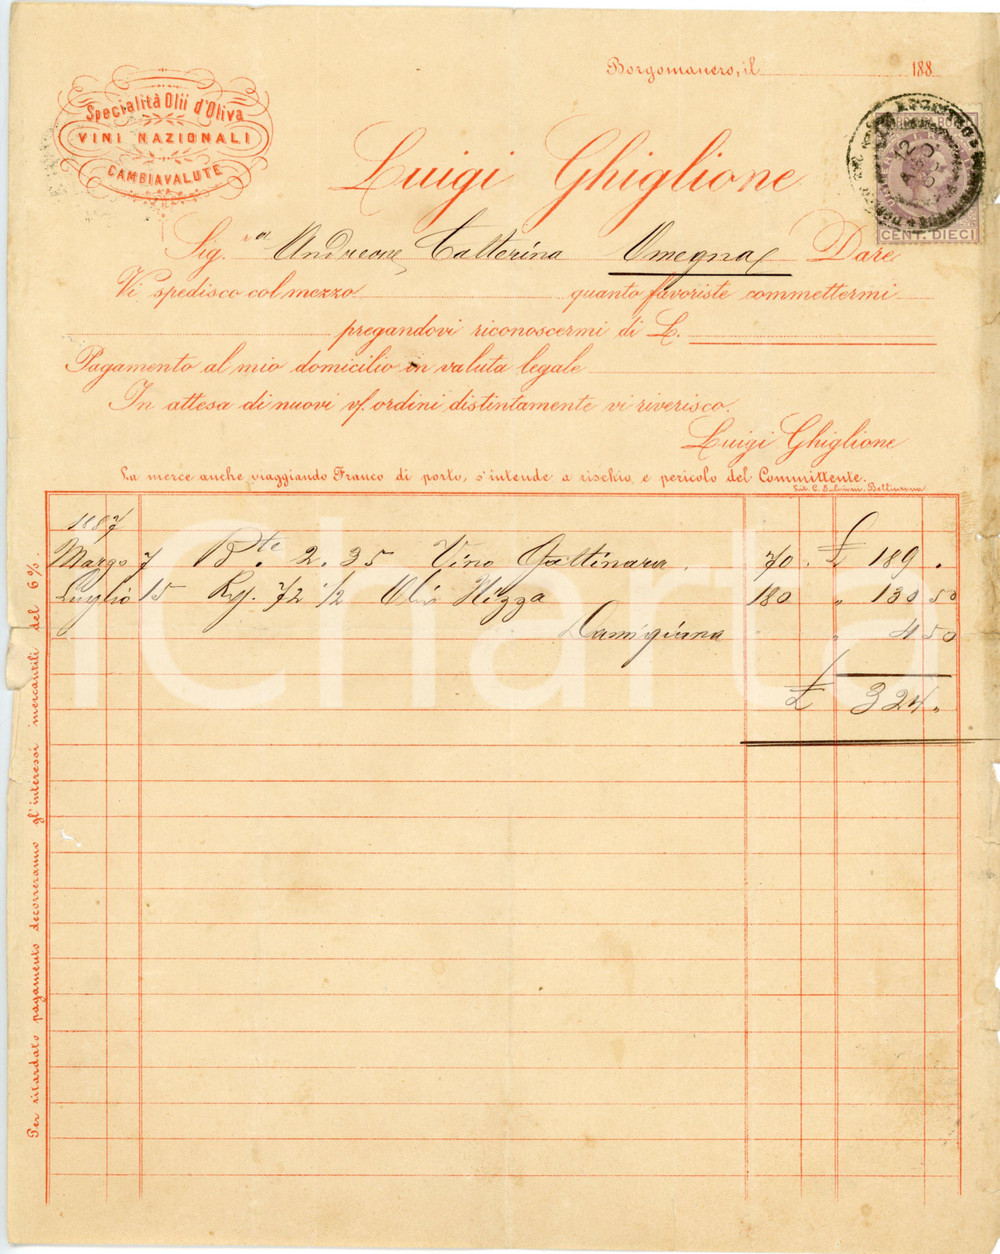 Borgomanero, il 188
Specialità Olii d'Oliva
VINI NAZIONALI
CAMBIAVALUTE
Luigi Ghiglione
CENT. DIECI
Sig.ra Andreoni Catterina Omegna Dare
Vi spedisco col mezzo quanto favoriste commettermi
pregandovi riconoscermi di L.
Pagamento al mio domicilio in valuta legale
In attesa di nuovi vs. ordini distintamente vi riverisco.
Luigi Ghiglione
La merce anche viaggiando Franco di porto, s'intende a rischio e pericolo del Committente.
1887
Marzo 7 B.te 2.35 Vino Gattinara. 70. £ 189.
Luglio 15 Kg. 72 1/2 Olio Nizza 180 " 130 50
Damigiana " 4 50
£ 324.
Per ritardato pagamento decorreranno gl'interessi mercantili del 6%.
iCharta